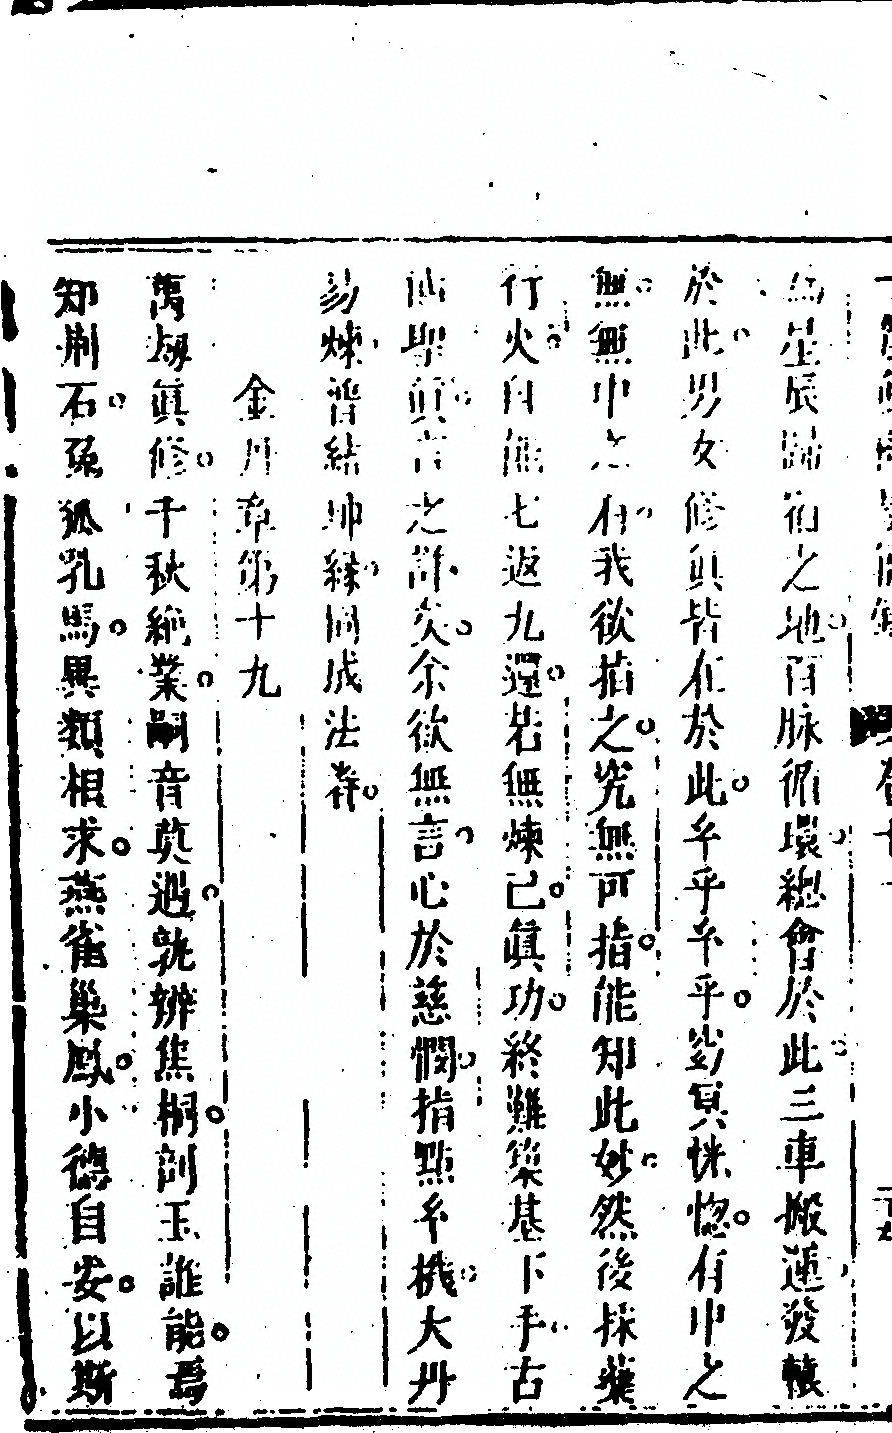 為星辰歸宿之地百脉循環總會於此三車搬運發轅
於此男女修眞皆在於此乎乎乎乎窈冥恍惚有中之
無無中之有我欲指之究無可指能知此妙然後採藥
行火自能七返九還若無煉己眞功終難築基下手古
仙聖眞言之詳矣余欲無言心於慈憫指點乎機大丹
易煉普結師緣同成法眷
金丹章第十九
萬刼眞修千秋絶業嗣音莫遇孰辨焦桐剖玉誰能爲
知荆石孤狐孔馬異類相求燕雀巢鳳小德自安以斯